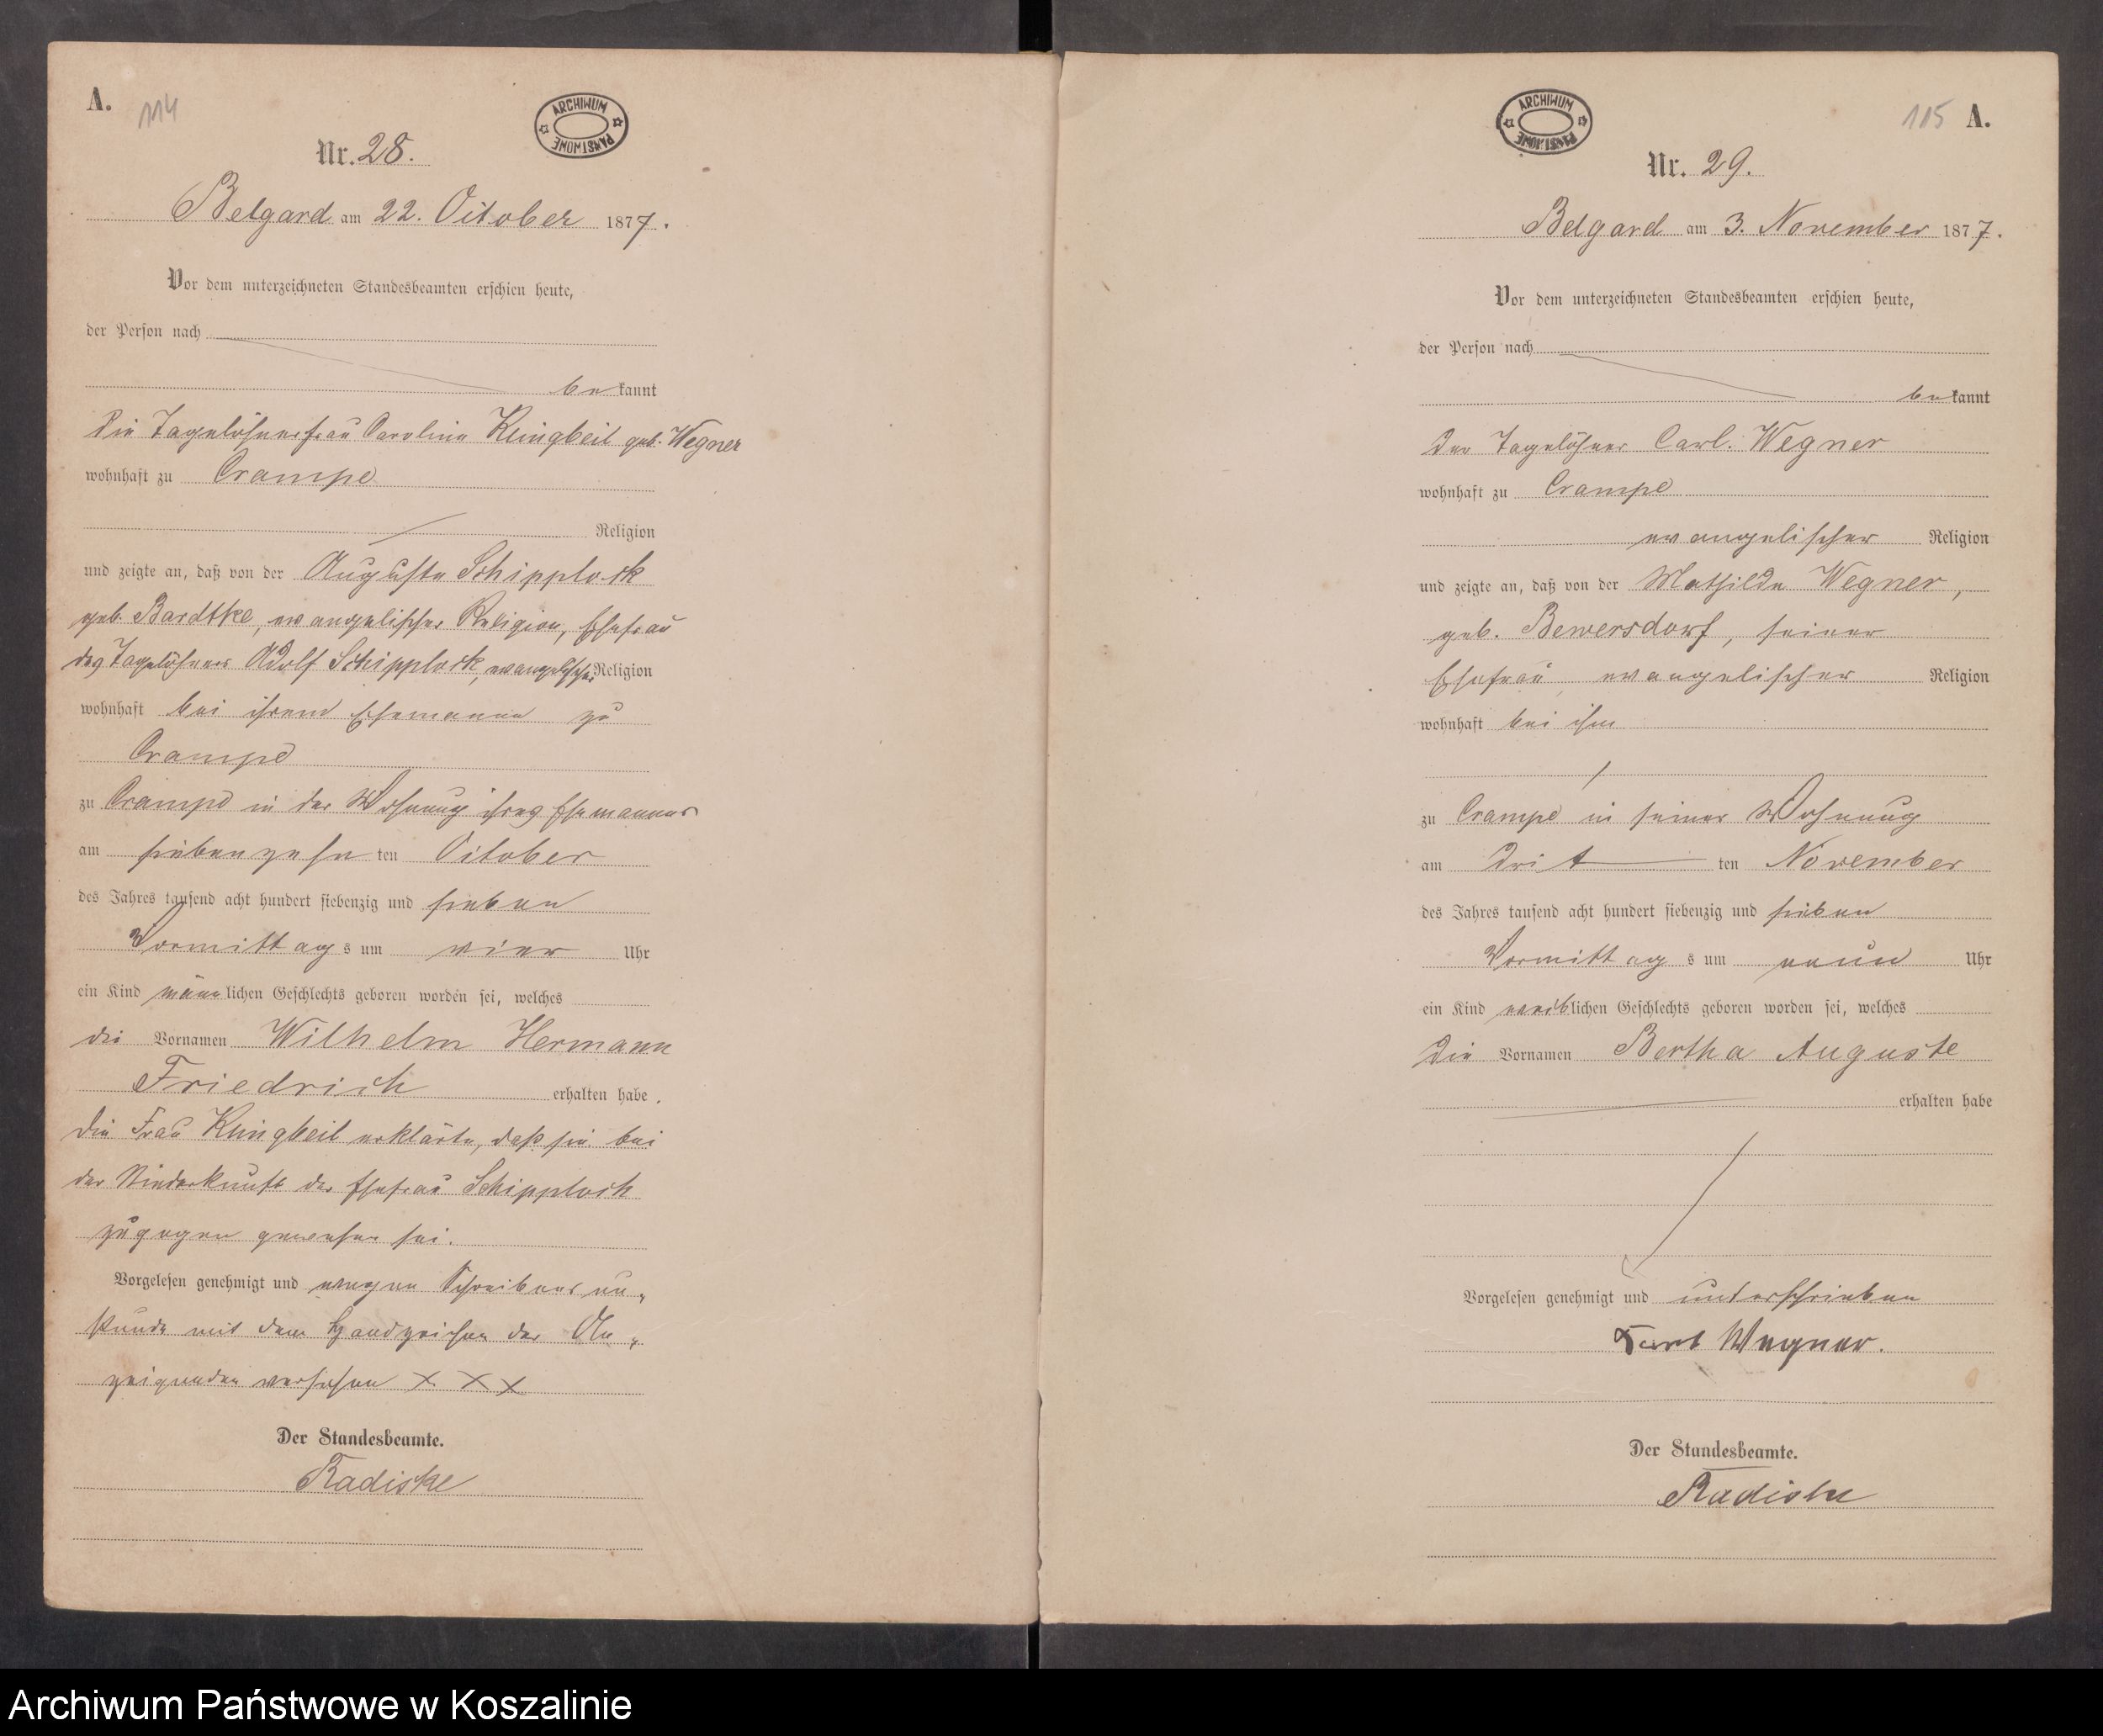 A.
114
ARCHIWUM PAŃSTWOWE
Nr. 28.
Belgard am 22. October 1877.
Vor dem unterzeichneten Standesbeamten erschien heute,
der Person nach
bekannt
die Tagelöhnerfrau Caroline Klingbeil geb. Wegner
wohnhaft zu Crampe
Religion
und zeigte an, daß von der Auguste Schipplock
geb. Bardtke, evangelischer Religion, Ehefrau
des Tagelöhners Adolf Schipplock, evangelischer Religion
wohnhaft bei ihrem Ehemanne zu
Crampe
zu Crampe in der Wohnung ihres Ehemannes
am siebenzehnten October
des Jahres tausend acht hundert siebenzig und sieben
Vormittags um vier Uhr
ein Kind männlichen Geschlechts geboren worden sei, welches
die Vornamen Wilhelm Hermann
Friedrich erhalten habe.
Die Frau Klingbeil erklärte, daß sie bei
der Niederkunft der Ehefrau Schipplock
zugegen gewesen sei.
Vorgelesen genehmigt und wegen Schreibens un„
kunde mit dem Handzeichen der An„
zeigenden versehen X X X
Der Standesbeamte.
Radiske
115 A.
ARCHIWUM PAŃSTWOWE
Nr. 29.
Belgard am 3. November 1877.
Vor dem unterzeichneten Standesbeamten erschien heute,
der Person nach
bekannt
der Tagelöhner Carl Wegner
wohnhaft zu Crampe
evangelischer Religion
und zeigte an, daß von der Mathilde Wegner,
geb. Bewersdorf, seiner
Ehefrau evangelischer Religion
wohnhaft bei ihm
zu Crampe in seiner Wohnung
am dritten November
des Jahres tausend acht hundert siebenzig und sieben
Vormittags um neun Uhr
ein Kind weiblichen Geschlechts geboren worden sei, welches
die Vornamen Bertha Auguste
erhalten habe
Vorgelesen genehmigt und unterschrieben
Karl Wegner.
Der Standesbeamte.
Radiske
Archiwum Państwowe w Koszalinie